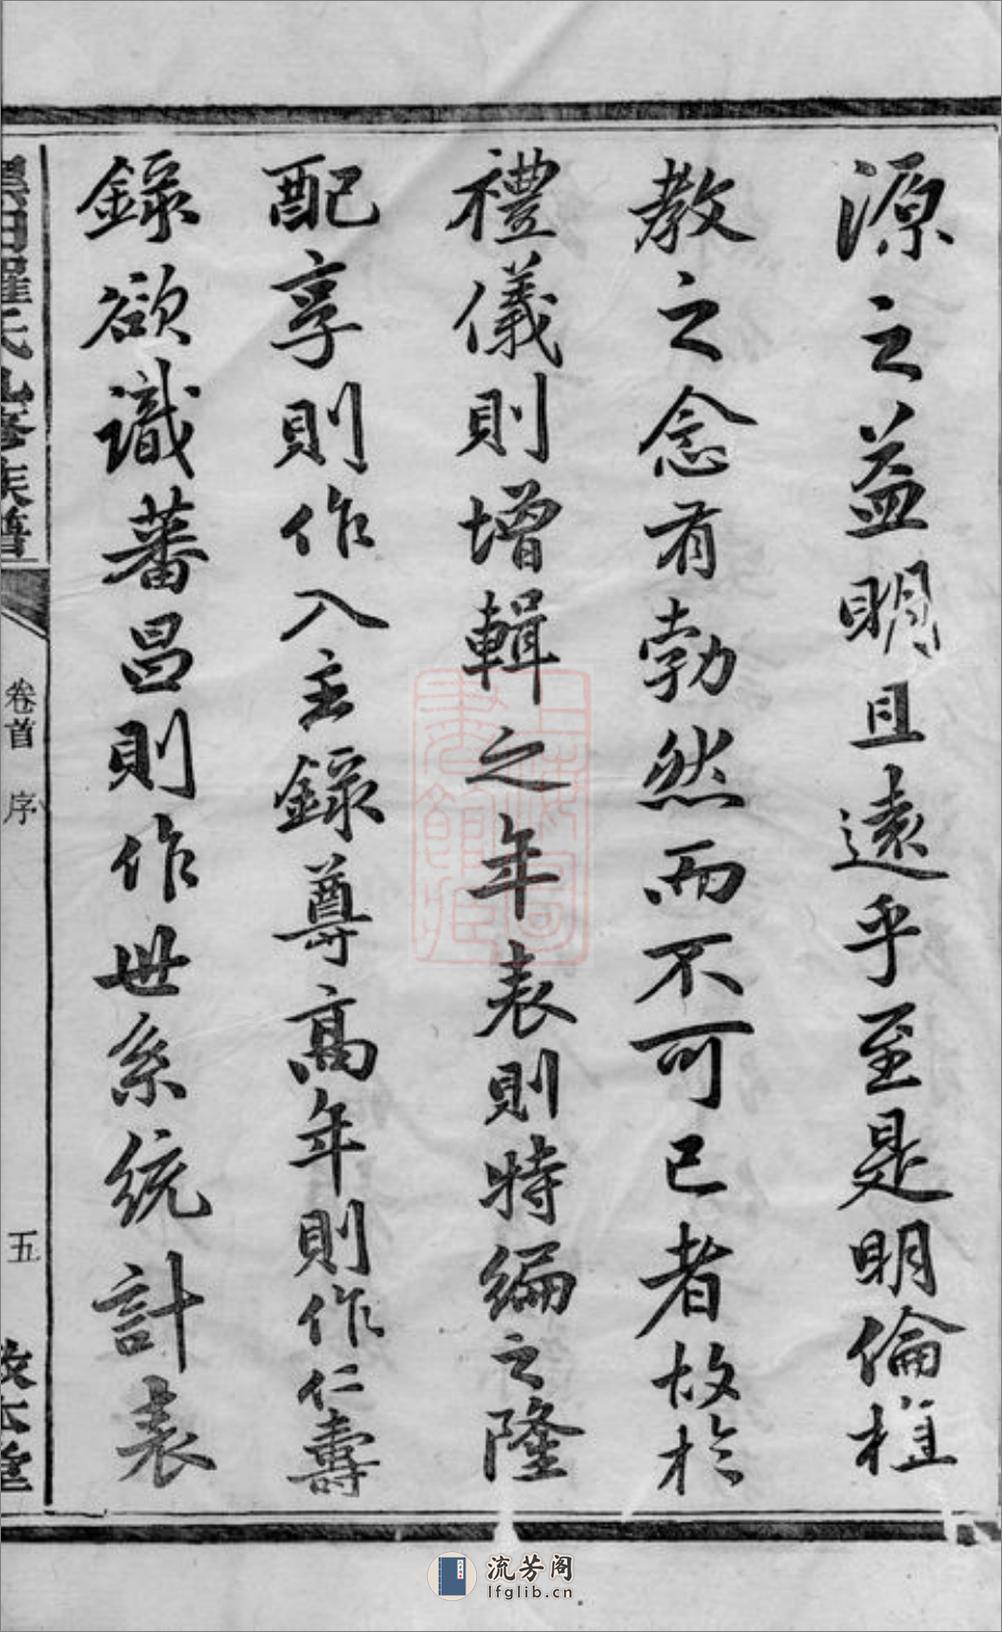 源之益明且遠乎至是明倫權
教之念有勃然而不可已者故於
禮儀則增輯之年表則特編之隆
配享則作入主錄尊高年則作仁壽
錄欲識蕃昌則作世系統計表
羅氏九修族譜
卷首 序
五
敦本堂
上海圖書館藏
流芳阁
lfglib.cn